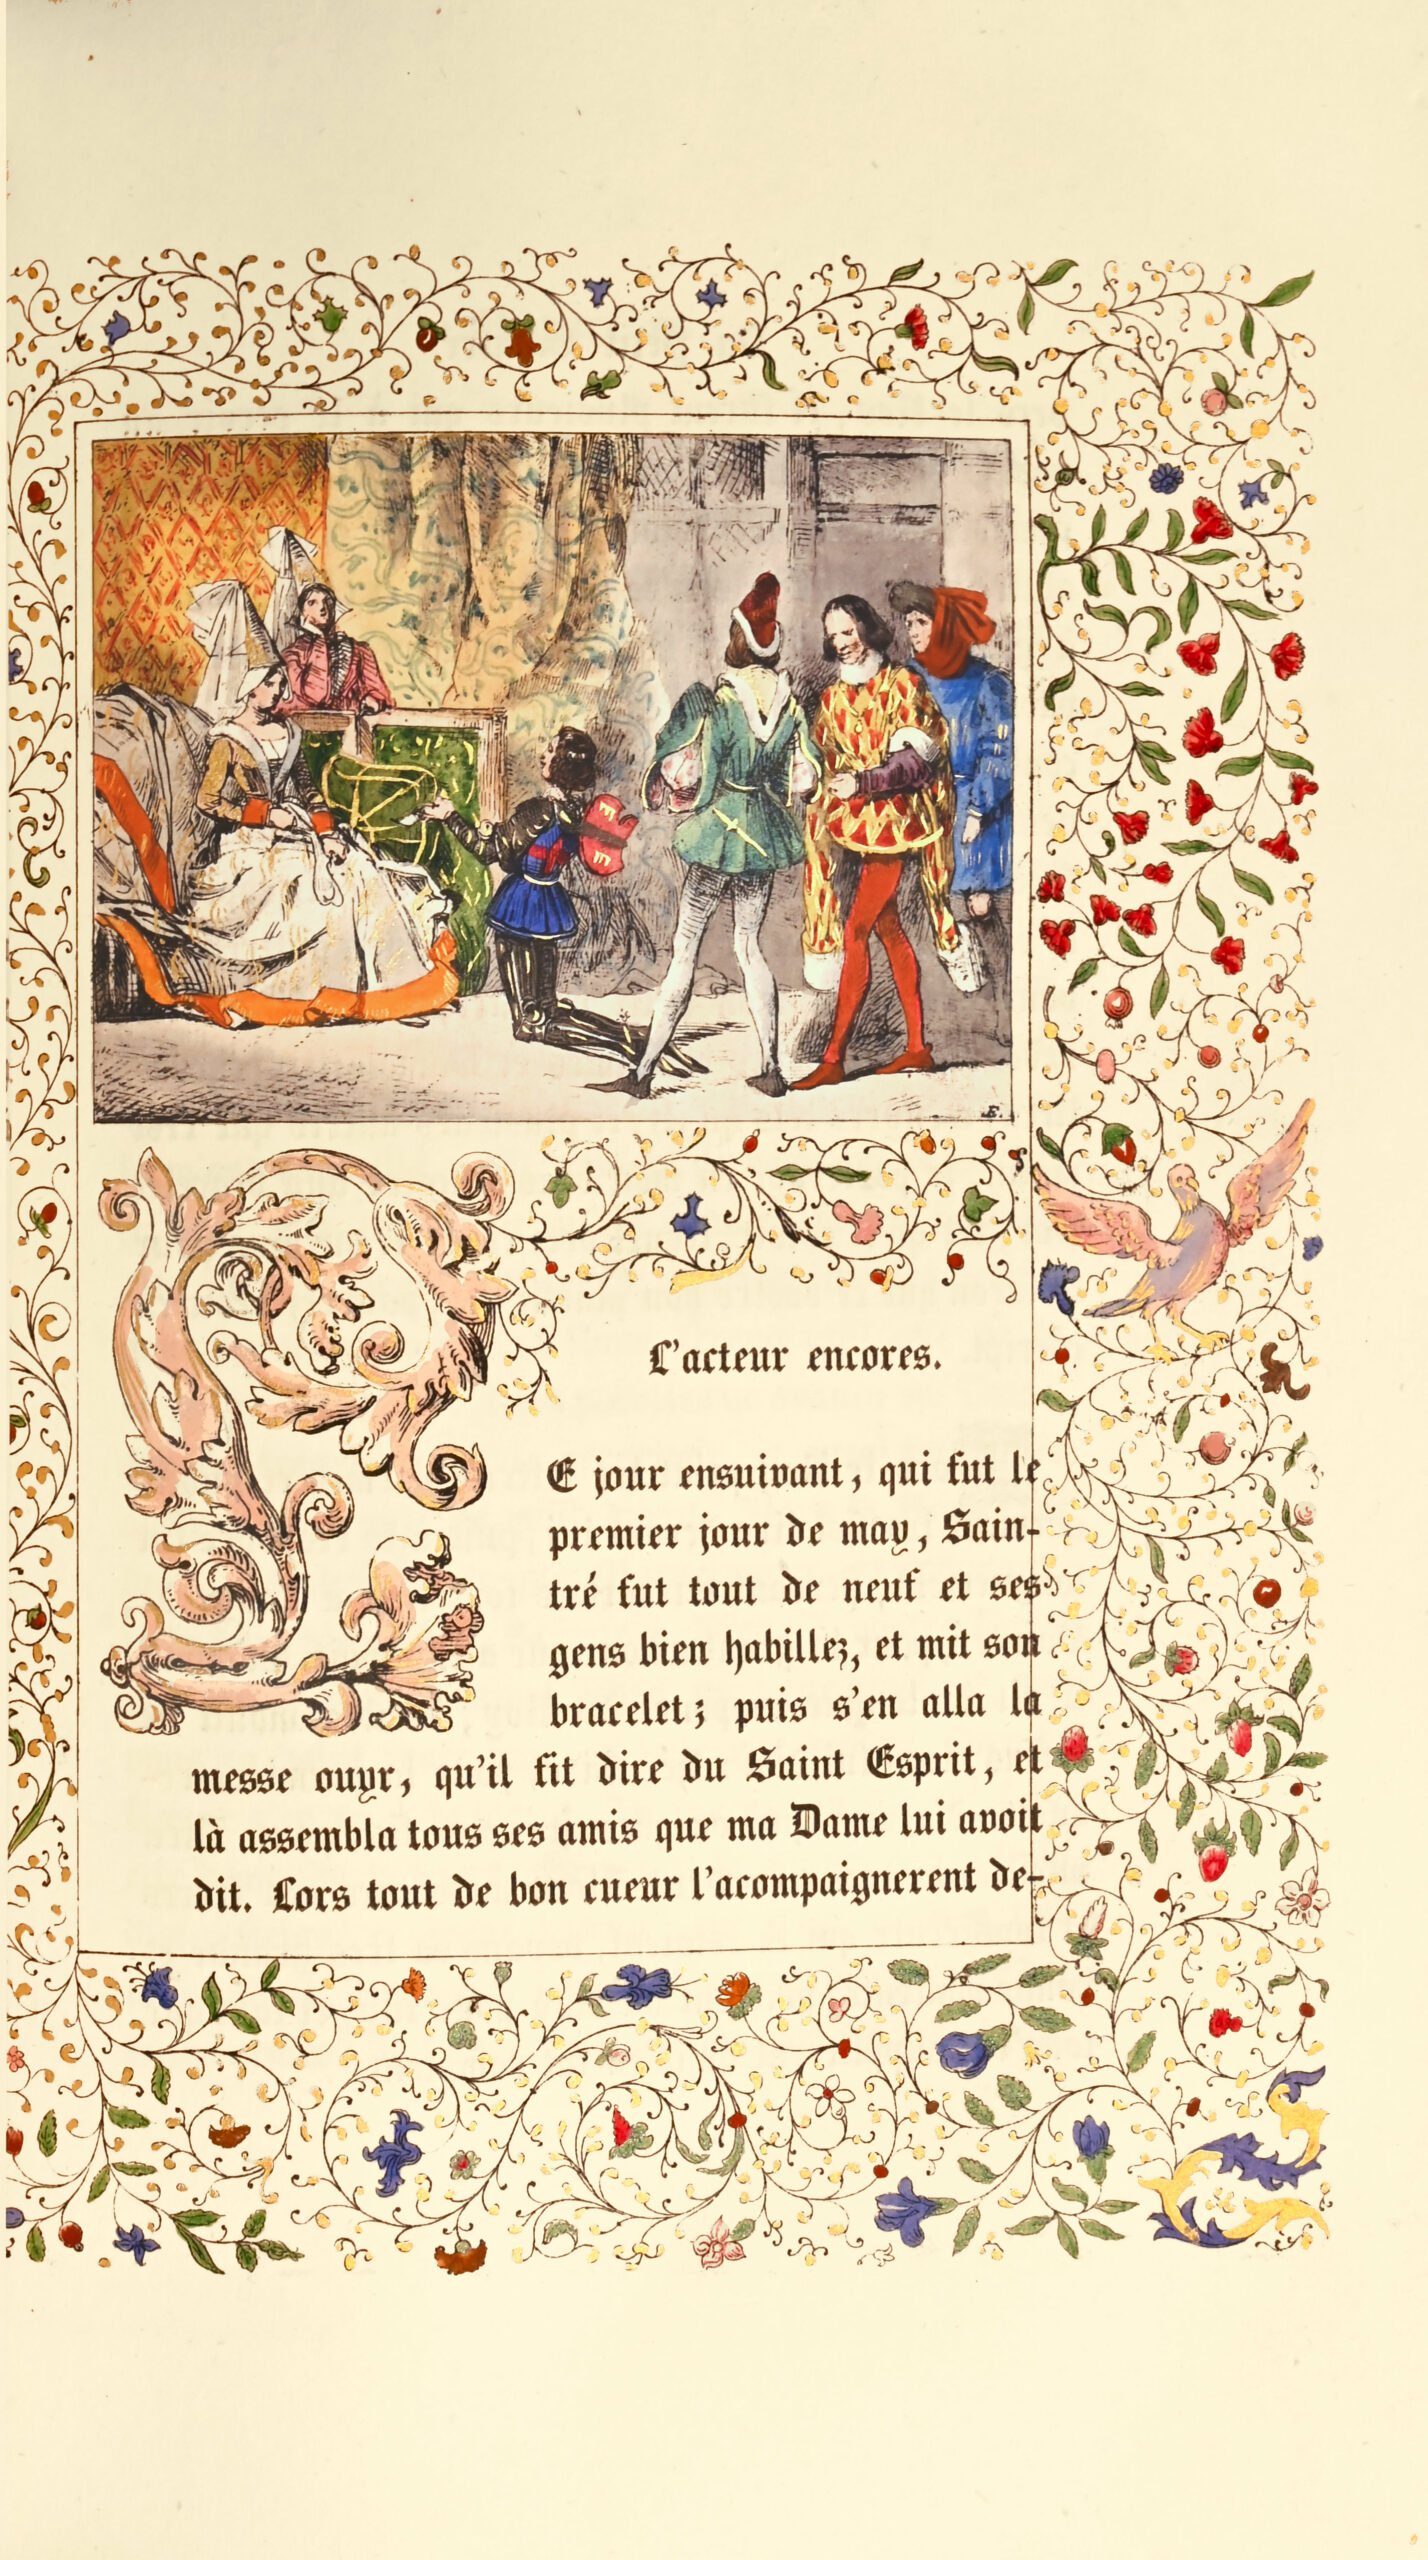 L'acteur encores.
LE jour ensuivant, qui fut le
premier jour de may, Sain-
tré fut tout de neuf et ses
gens bien habillez, et mit son
bracelet; puis s'en alla la
messe ouyr, qu'il fit dire du Saint Esprit, et
là assembla tous ses amis que ma Dame lui avoit
dit. Lors tout de bon cueur l'acompaignerent de-